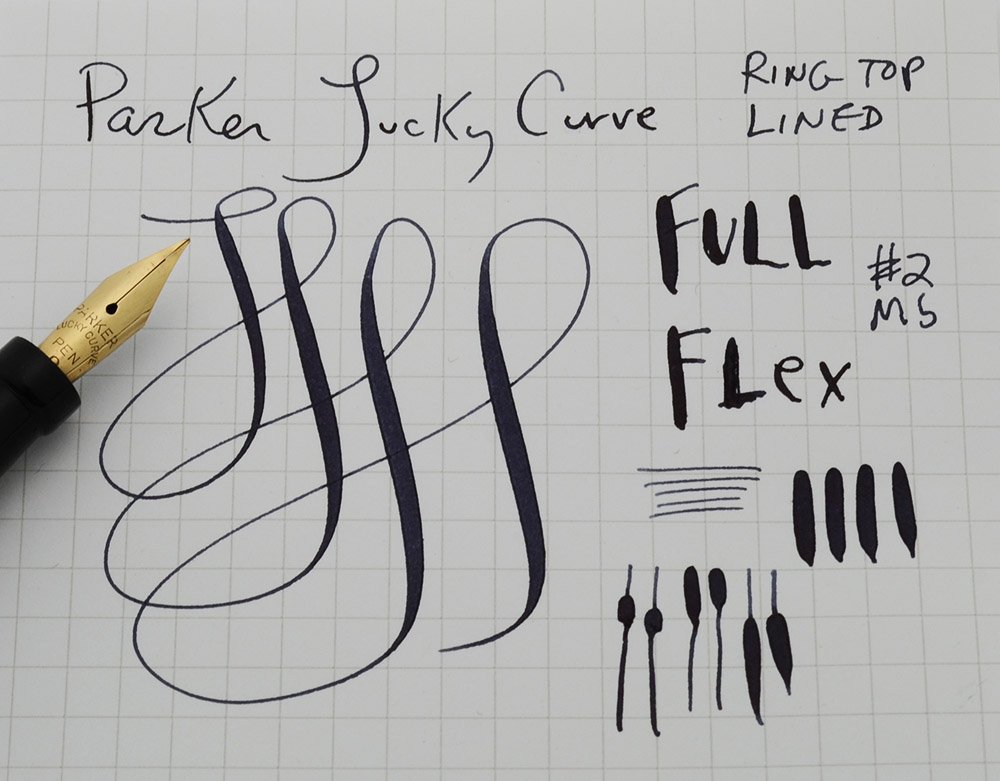 Parker Lucky Curve
RING TOP
LINED
FULL
FLex
#2
MS
PARKER
LUCKY CURVE
PEN